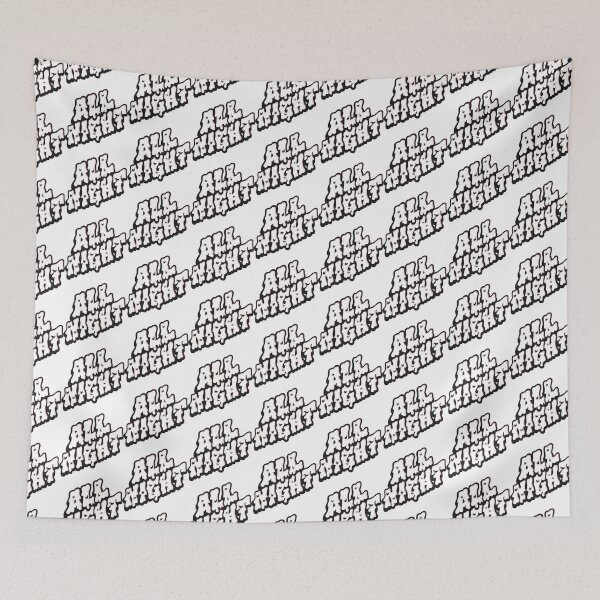 ALL
NIGHT